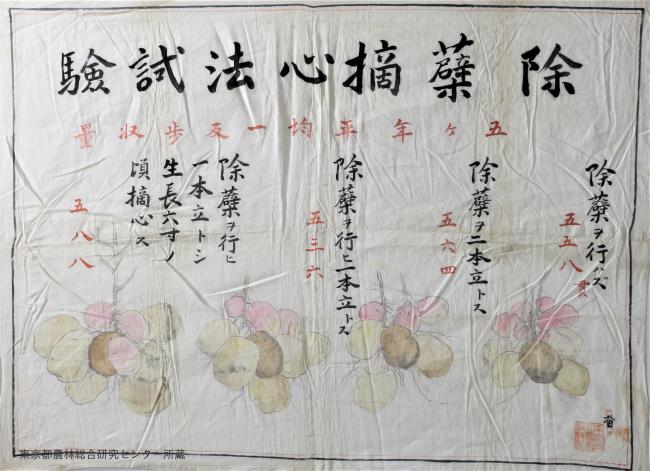 除蘗摘心法試驗
五ヶ年平均一反歩収量
除蘗ヲ行ハズ
五五八貫
除蘗ヲ二本立トス
五六四
除蘗ヲ行ヒ一本立トス
五三六
除蘗ヲ行ヒ
一本立トシ
生長六寸ノ
頃摘心ス
五八八
東京都農林総合研究センター所蔵